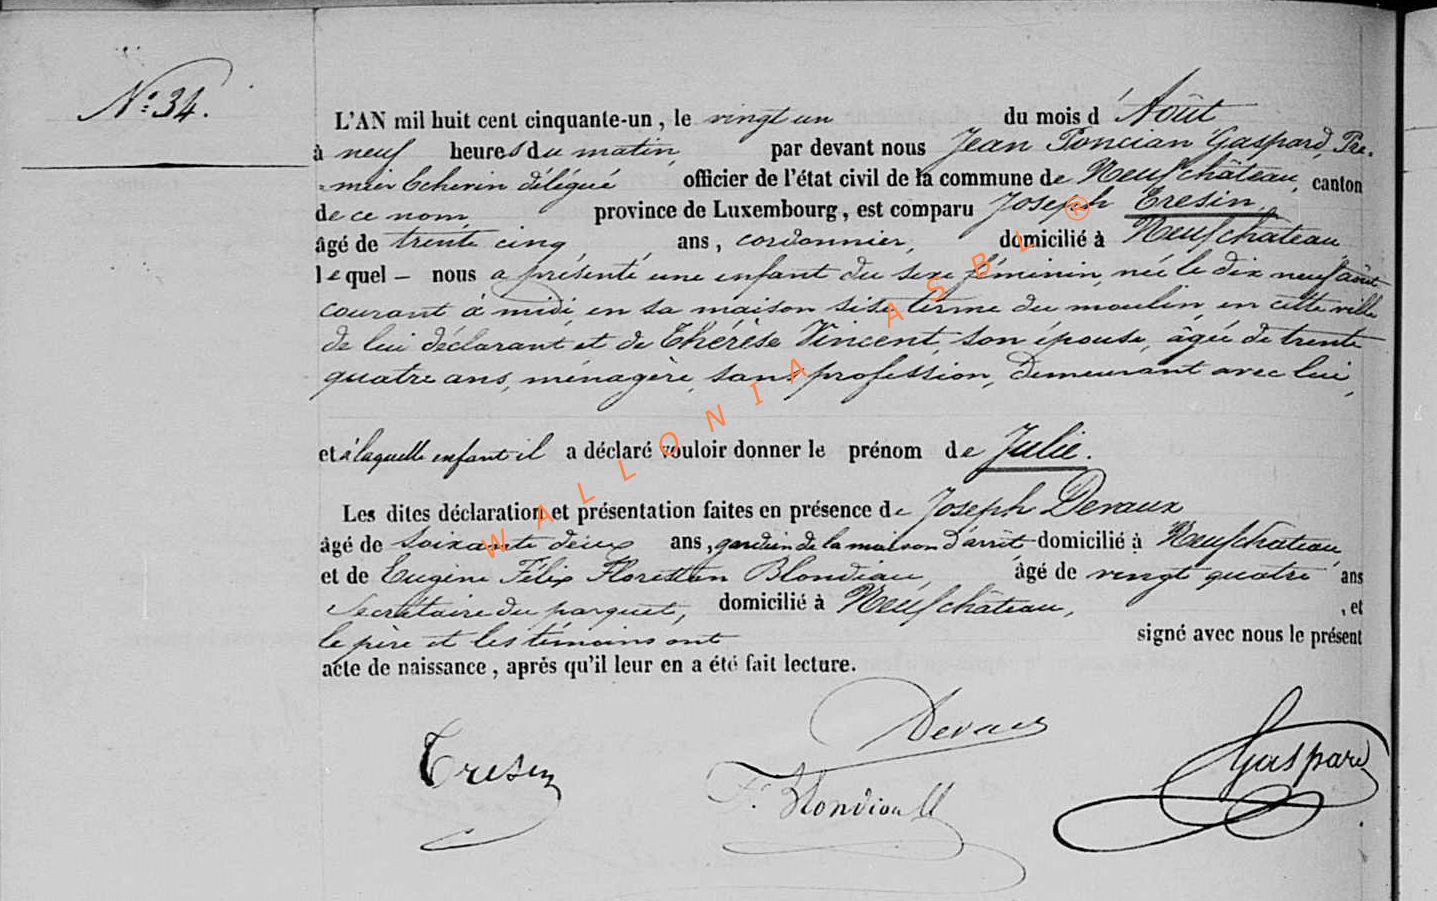 N°: 34.
L'AN mil huit cent cinquante-un, le vingt un du mois d'Août
à neuf heures du matin, par devant nous Jean Poncian Gaspard, Pre-
-mier Echevin délégué officier de l'état civil de la commune de Neufchâteau, canton
de ce nom province de Luxembourg, est comparu Joseph Tresin,
âgé de trente cinq ans, cordonnier, domicilié à Neufchateau
lequel — nous a présenté une enfant du sexe féminin, née le dix neuf août
courant à midi, en sa maison sise terme du moulin, en cette ville
de lui déclarant et de Thérèse Vincent, son épouse, âgée de trente
quatre ans, ménagère, sans profession, demeurant avec lui,
et à laquelle enfant il a déclaré vouloir donner le prénom de Julie.
Les dites déclaration et présentation faites en présence de Joseph Devaux
âgé de soixante deux ans, gardien de la maison d'arrêt domicilié à Neufchateau,
et de Eugène Félix Florestan Blondiau, âgé de vingt quatre ans
Secrétaire du parquet, domicilié à Neufchâteau, , et
le père et les témoins ont signé avec nous le présent
acte de naissance, après qu'il leur en a été fait lecture.
Devaux
Tresin
Gaspard
F. Blondiau
WALLONIA ASBL ®